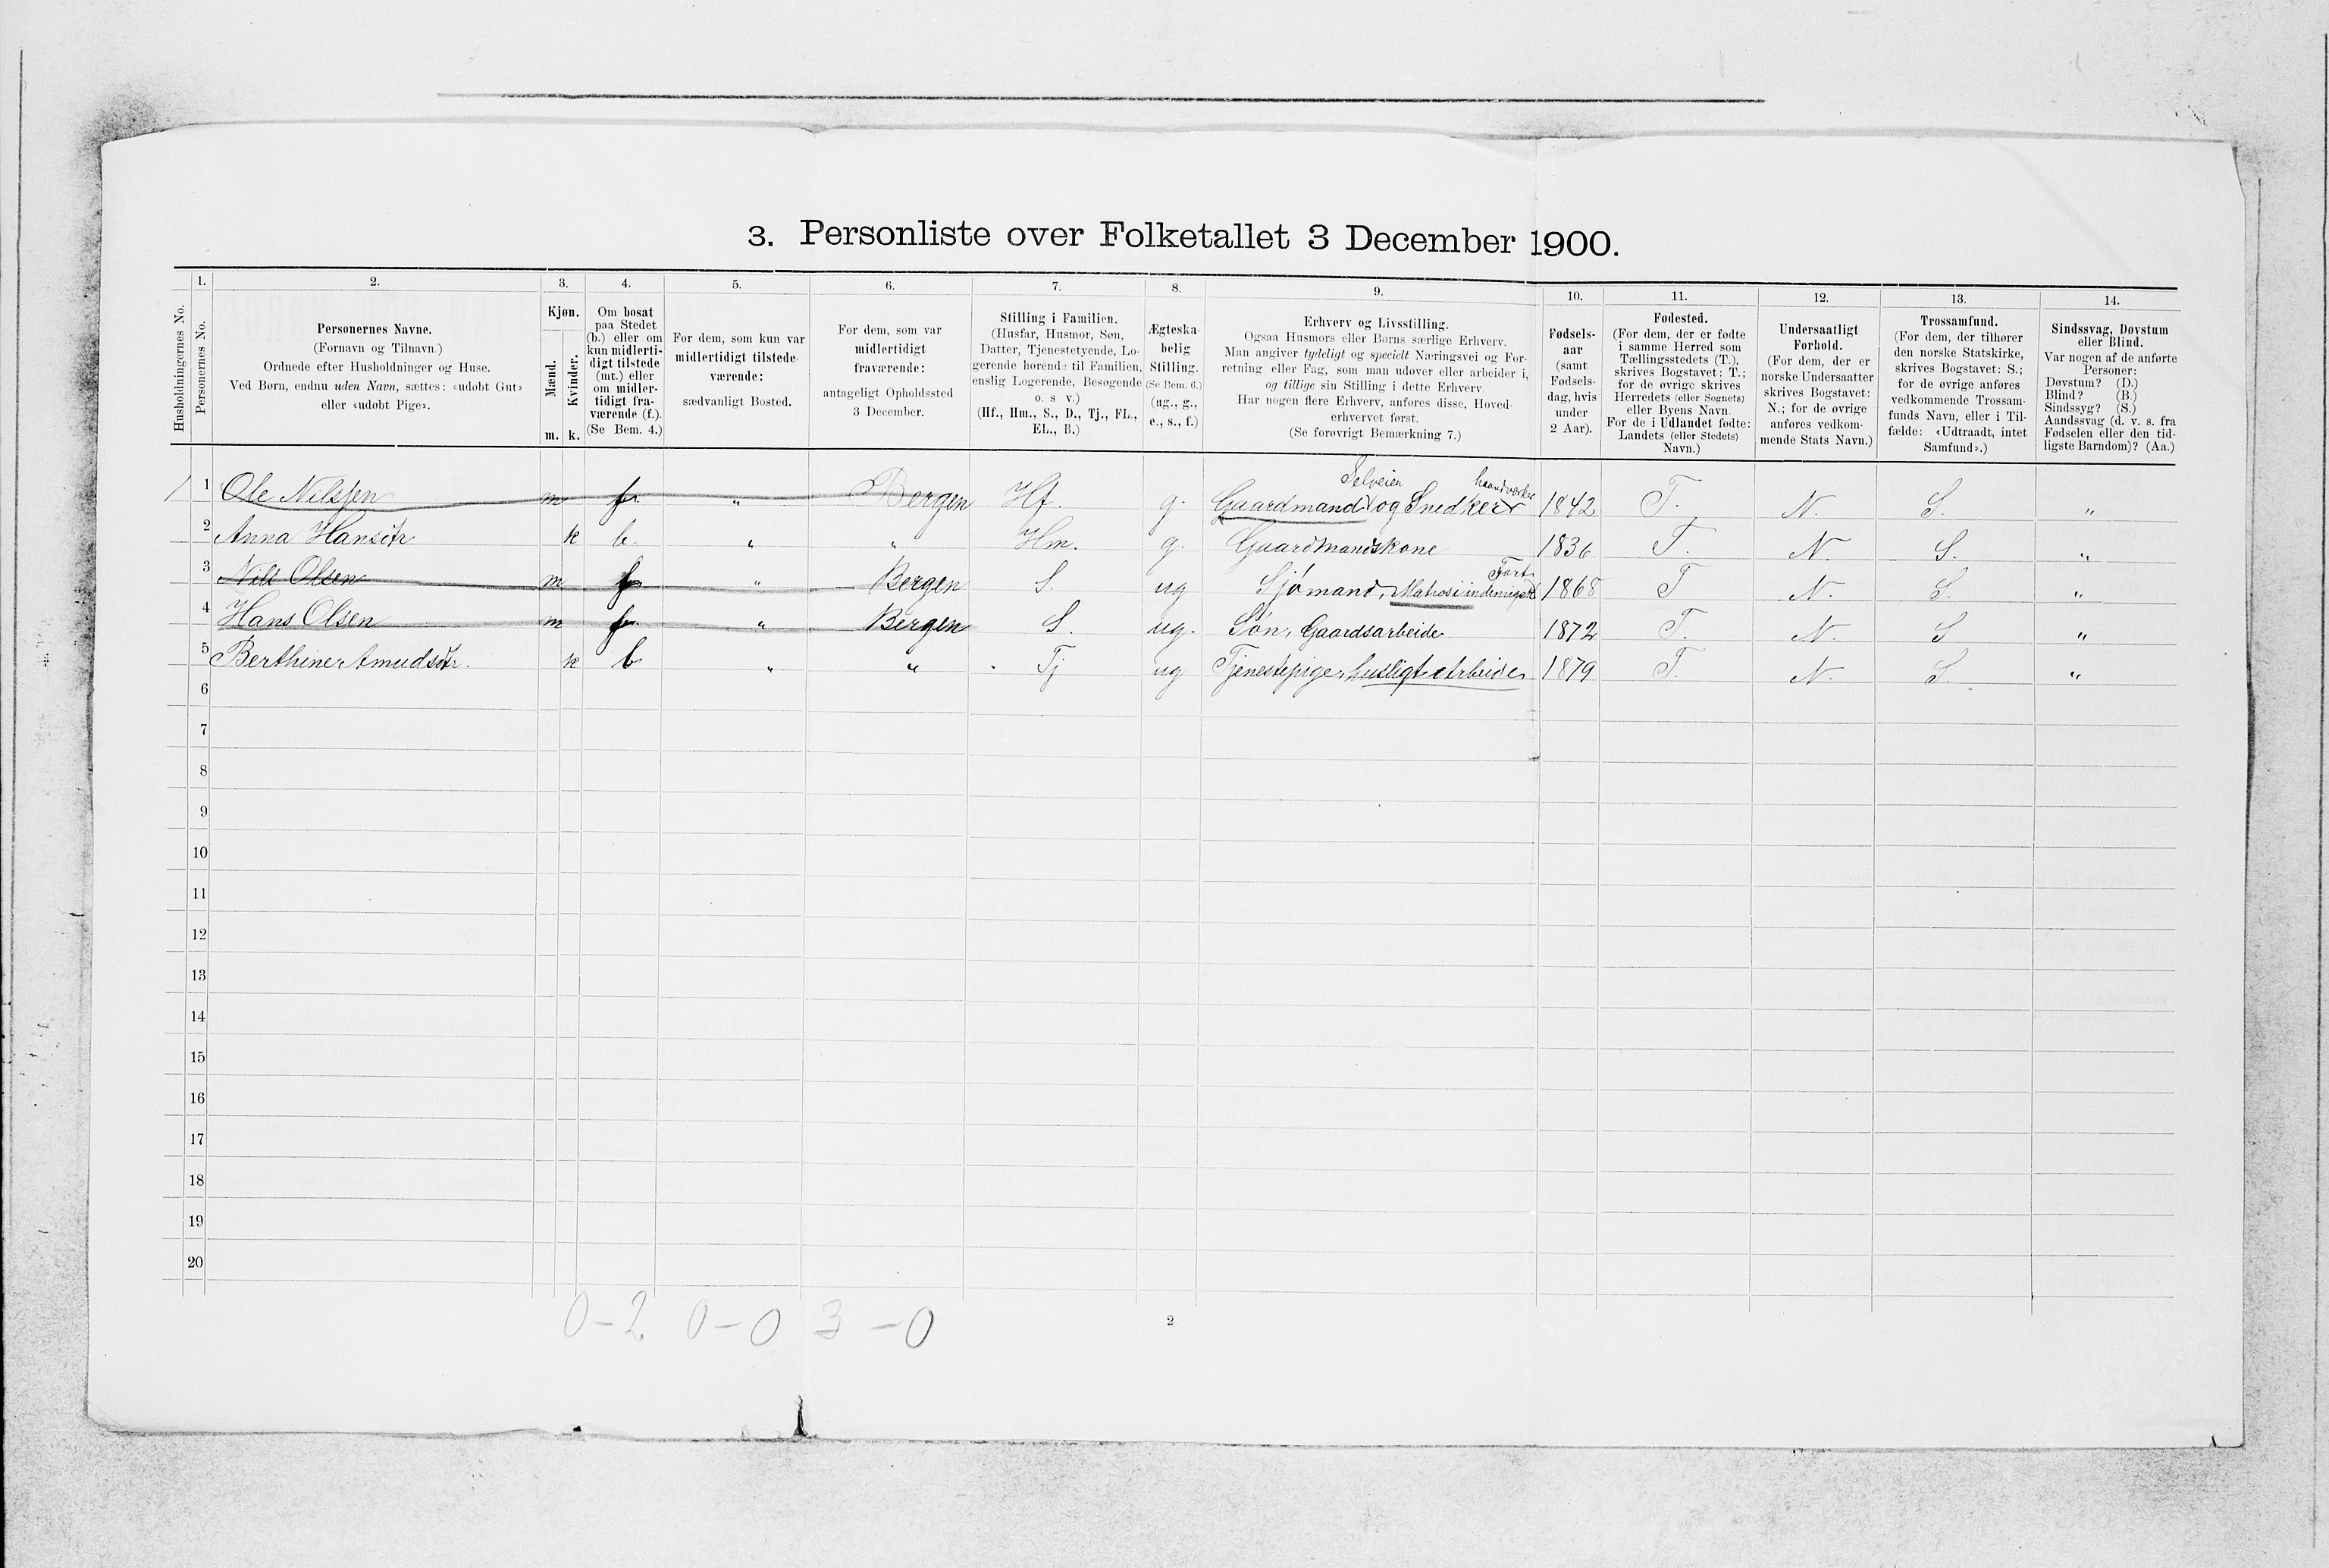 3. Personliste over Folketallet 3 December 1900.
Husholdningernes No.
1.
Personernes No.
2.
Personernes Navne.
(Fornavn og Tilnavn.)
Ordnede efter Husholdninger og Huse.
Ved Børn, endnu uden Navn, sættes: «udøbt Gut»
eller «udøbt Pige».
3.
Kjøn.
Mænd.
Kvinder.
m. k.
4.
Om bosat
paa Stedet
(b.) eller om
kun midlerti-
digt tilstede
(mt.) eller
om midler-
tidigt fra-
værende (f.).
(Se Bem. 4.)
5.
For dem, som kun var
midlertidigt tilstede-
værende:
sædvanligt Bosted.
6.
For dem, som var
midlertidigt
fraværende:
antageligt Opholdssted
3 December.
7.
Stilling i Familien.
(Husfar, Husmor, Søn,
Datter, Tjenestetyende, Lo-
gerende hørende til Familien,
enslig Logerende, Besøgende
o. s v.)
(Hf., Hm., S., D., Tj., FL.,
EL., B.)
8.
Ægteska-
belig
Stilling.
(Se Bem. 6.)
(ug., g.,
e., s., f.)
9.
Erhverv og Livsstilling.
Ogsaa Husmors eller Børns særlige Erhverv.
Man angiver tydeligt og specielt Næringsvei og For-
retning eller Fag, som man udøver eller arbeider i,
og tillige sin Stilling i dette Erhverv.
Har nogen flere Erhverv, anføres disse, Hoved-
erhvervet først.
(Se forøvrigt Bemærkning 7.)
10.
Fødsels-
aar
(samt
Fødsels-
dag, hvis
under
2 Aar).
11.
Fødested.
(For dem, der er fødte
i samme Herred som
Tællingsstedets (T.),
skrives Bogstavet: T.;
for de øvrige skrives
Herredets (eller Sognets)
eller Byens Navn.
For de i Udlandet fødte:
Landets (eller Stedets)
Navn.)
12.
Undersaatligt
Forhold.
(For dem, der er
norske Undersaatter
skrives Bogstavet:
N.; for de øvrige
anføres vedkom-
mende Stats Navn.)
13.
Trossamfund.
(For dem, der tilhører
den norske Statskirke,
skrives Bogstavet: S.;
for de øvrige anføres
vedkommende Trossam-
funds Navn, eller i Til-
fælde: «Udtraadt, intet
Samfund».)
14.
Sindssvag, Døvstum
eller Blind.
Var nogen af de anførte
Personer:
Døvstum? (D.)
Blind? (B.)
Sindssyg? (S.)
Aandssvag (d. v. s. fra
Fødselen eller den tid-
ligste Barndom)? (Aa.)
Selveier haandverker
1 1 Ole Nilssen m f " Bergen Hf. g. Gaardmand og Snedker 1842 T. N. S. "
2 Anna Hansdtr k b. " " Hm. g. Gaardmandskone 1836 T. N S. "
Fart
3 Nils Olsen m f " Bergen S. ug Sjømand, Matros i indenrigsk 1868 T N. S. "
4 Hans Olsen m f " Bergen S. ug. Søn, Gaardsarbeide 1872 T. N. S "
5 Berthine Amudsdtr. k b " " Tj ug Tjenestepige, husligt Arbeide 1879 T. N. S. "
6
7
8
9
10
11
12
13
14
15
16
17
18
19
20
0-2 0-0 3-0
2